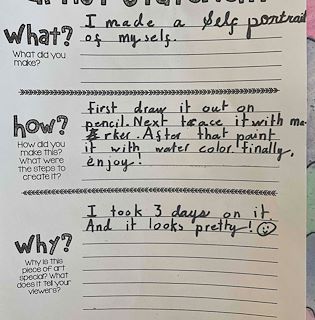 What?
What did you
make?
I made a self portrait
of my self.
how?
How did you
make this?
What were
the steps to
create it?
First draw it out on
pencil. Next trace it with ma-
rker. After that paint
it with water color. finally,
enjoy!
Why?
Why is this
piece of art
special? What
does it tell your
viewers?
I took 3 days on it
And it looks pretty!